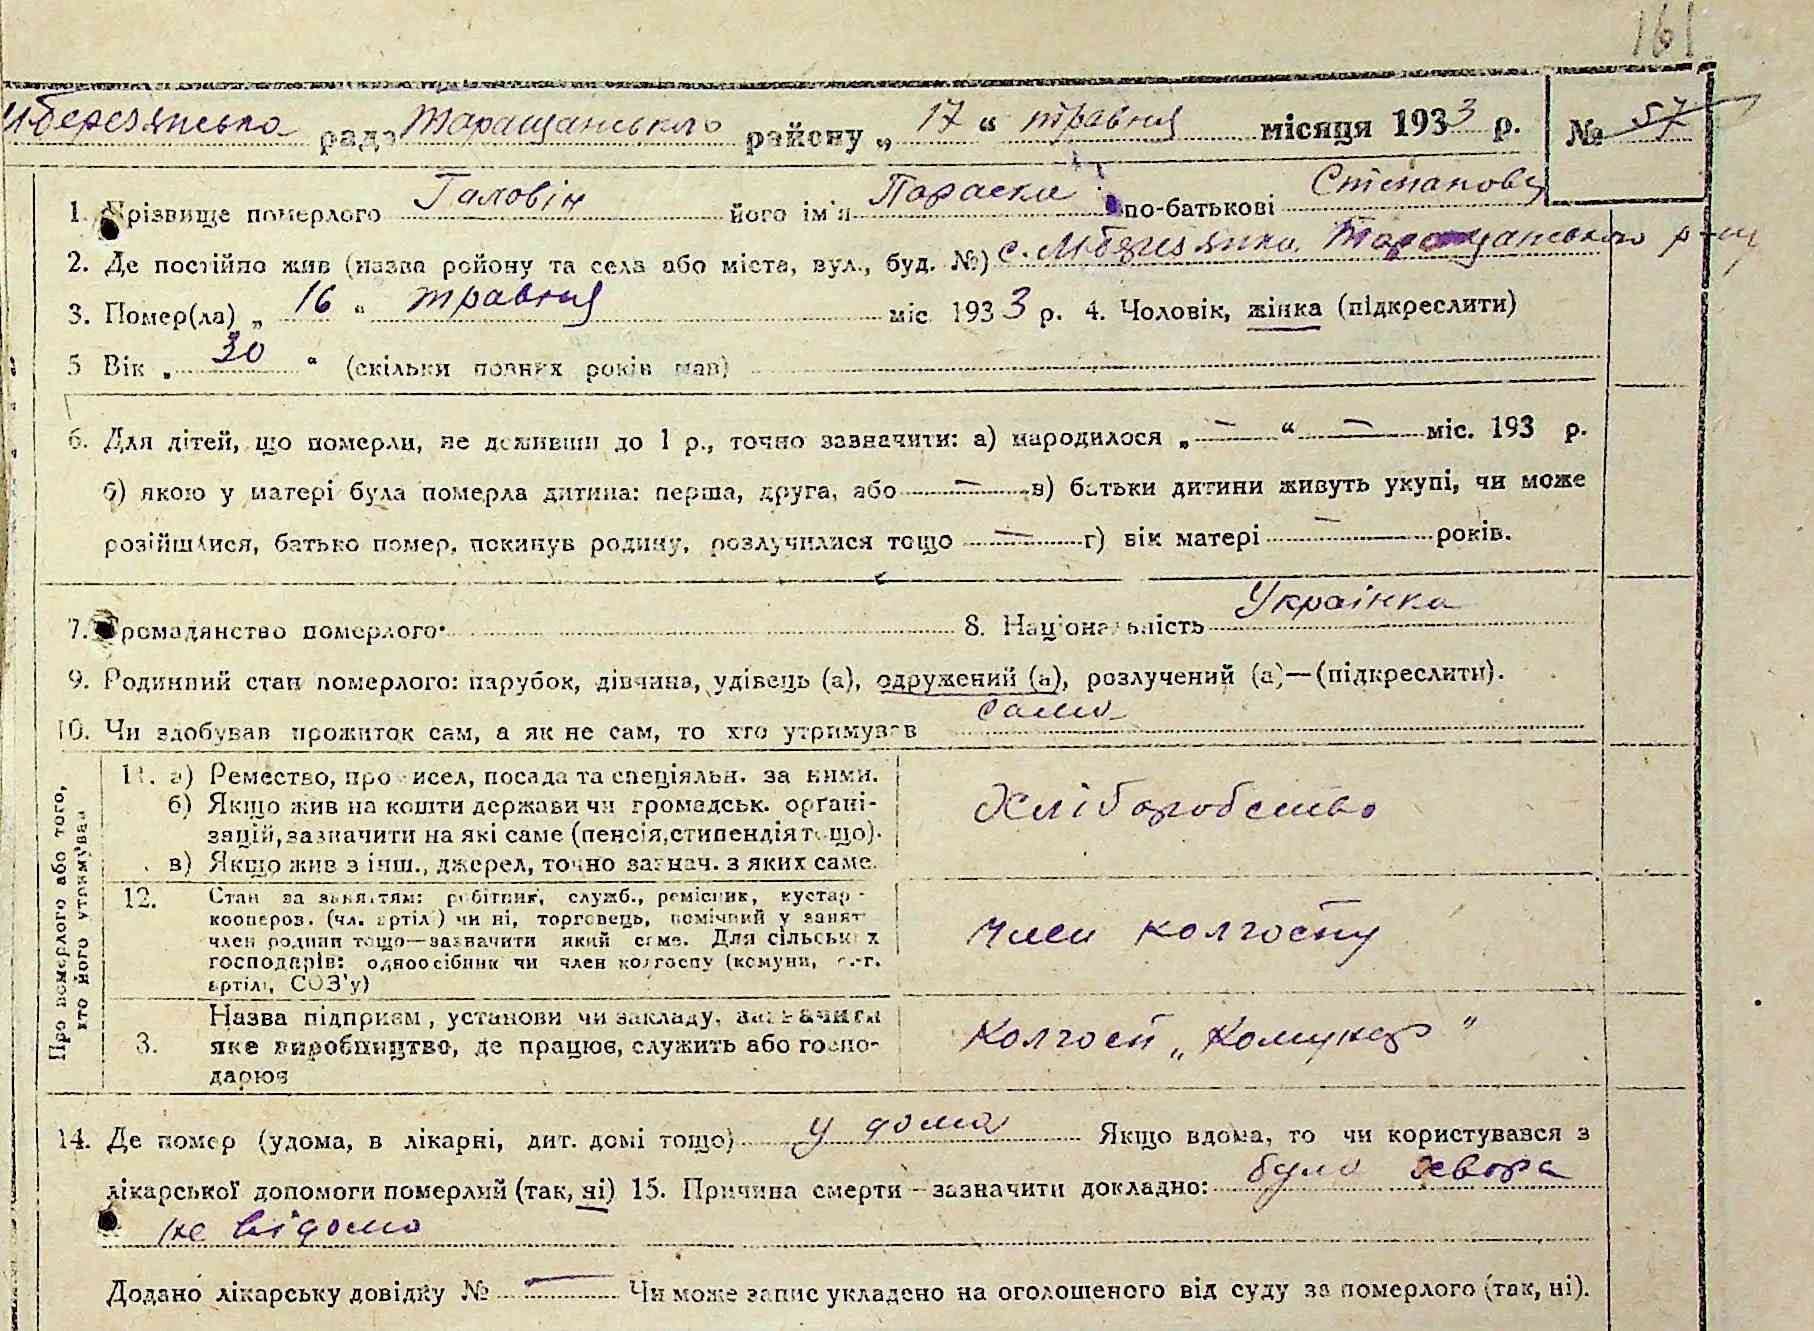 161
М-Березянська рада Таращанського району „ 17 “ травня місяця 1933 р. № 57
1. Прізвище померлого Головін його ім'я Параска по-батькові Степанов
2. Де постійно жив (назва району та села або міста, вул., буд. №) с. М-Березянка Таращанського р-ну
3. Помер(ла) „ 16 “ травня міс 1933 р. 4. Чоловік, жінка (підкреслити)
5 Вік „ 30 “ (скільки повних років мав)
6. Для дітей, що померли, не доживши до 1 р., точно зазначити: а) народилося „ — “ — міс. 193 р.
б) якою у матері була померла дитина: перша, друга, або — в) батьки дитини живуть укупі, чи може
розійшлися, батько помер, покинув родину, розлучилися тощо — г) вік матері — років.
7. Громадянство померлого 8. Національність Українка
9. Родинний стан померлого: парубок, дівчина, удівець (а), одружений (а), розлучений (а)—(підкреслити).
10. Чи здобував прожиток сам, а як не сам, то хто утримував сама
Про померлого або того, хто його утримував
11. а) Ремество, промисел, посада та спеціяльн. за ними.
б) Якщо жив на кошти держави чи громадськ. орґані-
зацій, зазначити на які саме (пенсія, стипендія тощо).
в) Якщо жив з інш., джерел, точно зазнач. з яких саме.
Хліборобство
12. Стан за заняттям: робітник, служб., ремісник, кустар-
кооперов. (чл. артілі) чи ні, торговець, помічний у занят
член родини тощо—зазначити який саме. Для сільських
господарів: одноосібник чи член колгоспу (комуни, с.-г.
артілі, СОЗ'у)
член колгоспу
3. Назва підприєм, установи чи закладу, зазначити
яке виробництво, де працює, служить або госпо-
дарює
Колгосп „Комунар"
14. Де помер (удома, в лікарні, дит. домі тощо) у дома Якщо вдома, то чи користувався з
лікарської допомоги померлий (так, ні) 15. Причина смерти—зазначити докладно: була хвора
не відомо
Додано лікарську довідку № — Чи може запис укладено на оголошеного від суду за померлого (так, ні).